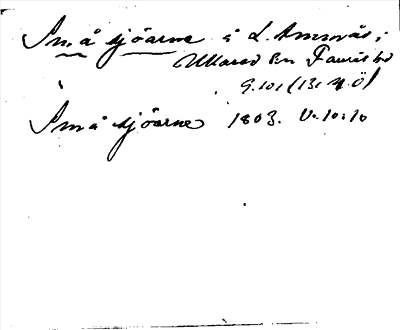 Små sjöarne å L. Annevås i
Ullared sn Fauräs hd
G.101 (13. 4. Ö)
Små sjöarne 1803. V. 10:10